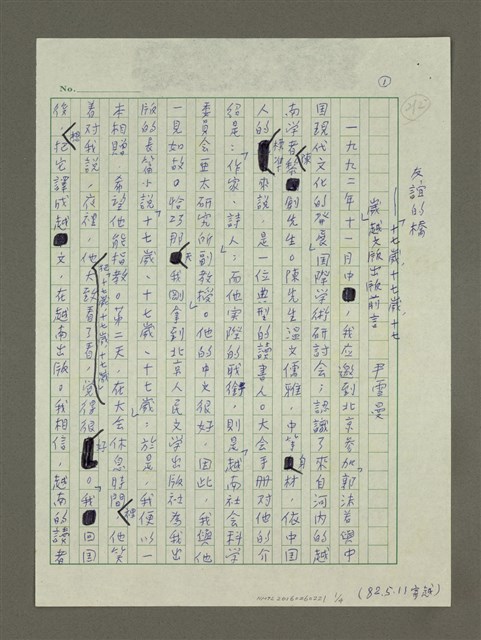 No.
①
友誼的橋
——「十七歲、十七歲、十七
歲」越文版出版前言
尹雪曼
一九九二年十一月中,我应邀到北京參加「郭沫若與中
国現代文化的發展国際学術研討会」;認識了來自河內的越
南学者黎陳創先生。陳先生溫文儒雅,中等身材,依中国
人的標準來說,是一位典型的讀書人。大会手册对他的介
紹是:「作家、詩人」;而他实際的職銜,則是「越南社会科学
委員会亞太研究所副教授」。他的中文很好,因此,我與他
一見如故。恰巧那天我剛拿到北京人民文学出版社為我出
版的長篇小說「十七歲、十七歲、十七歲」;於是,我便以一
本相贈,希望他能指教。第二天,在大会休息時間裡,他笑
着对我說,夜裡,他把「十七歲、十七歲、十七歲」大致看了看,覺得很好。「我想回国
後把它譯成越文,在越南出版。我相信,越南的讀者
(82.5.11寄越)
1/4